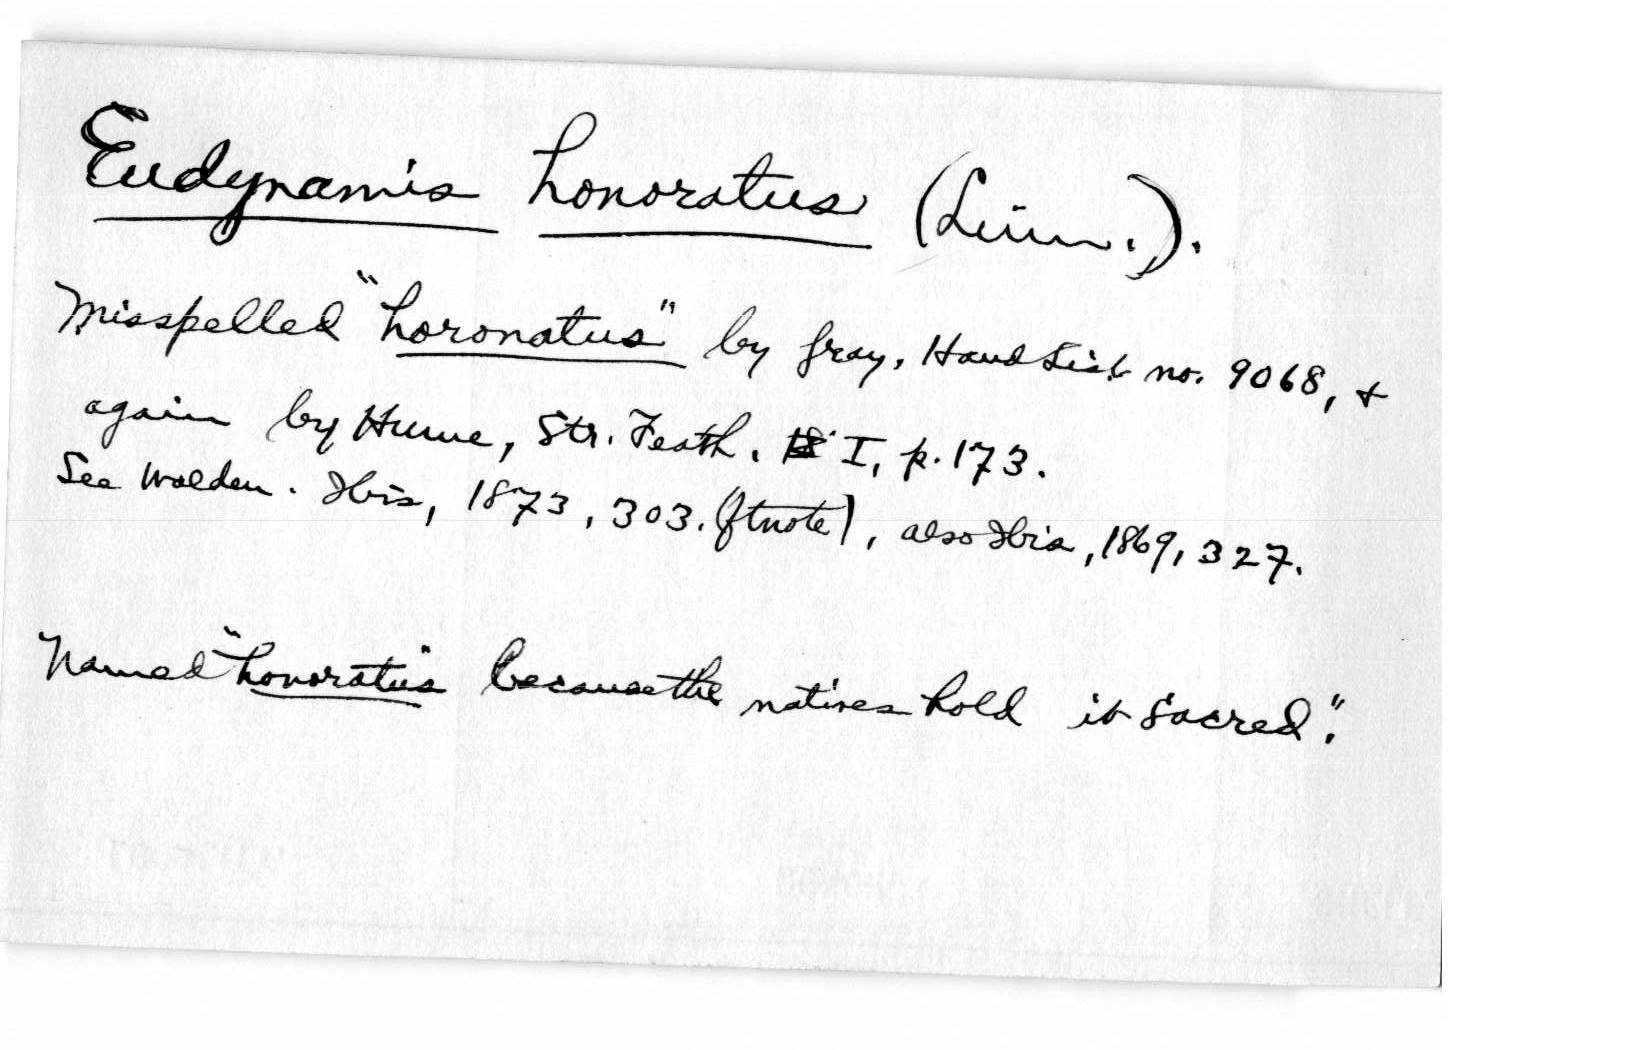 Eudynamis honoratus (Linn.).
Misspelled "horonatus" by Gray, Hand List no. 9068, &
again by Hume, Str. Feath. I, p. 173.
See Walden. Ibis, 1873, 303. (ftnote), also Ibis, 1869, 327.
Named "honoratus" because the natives hold it sacred."